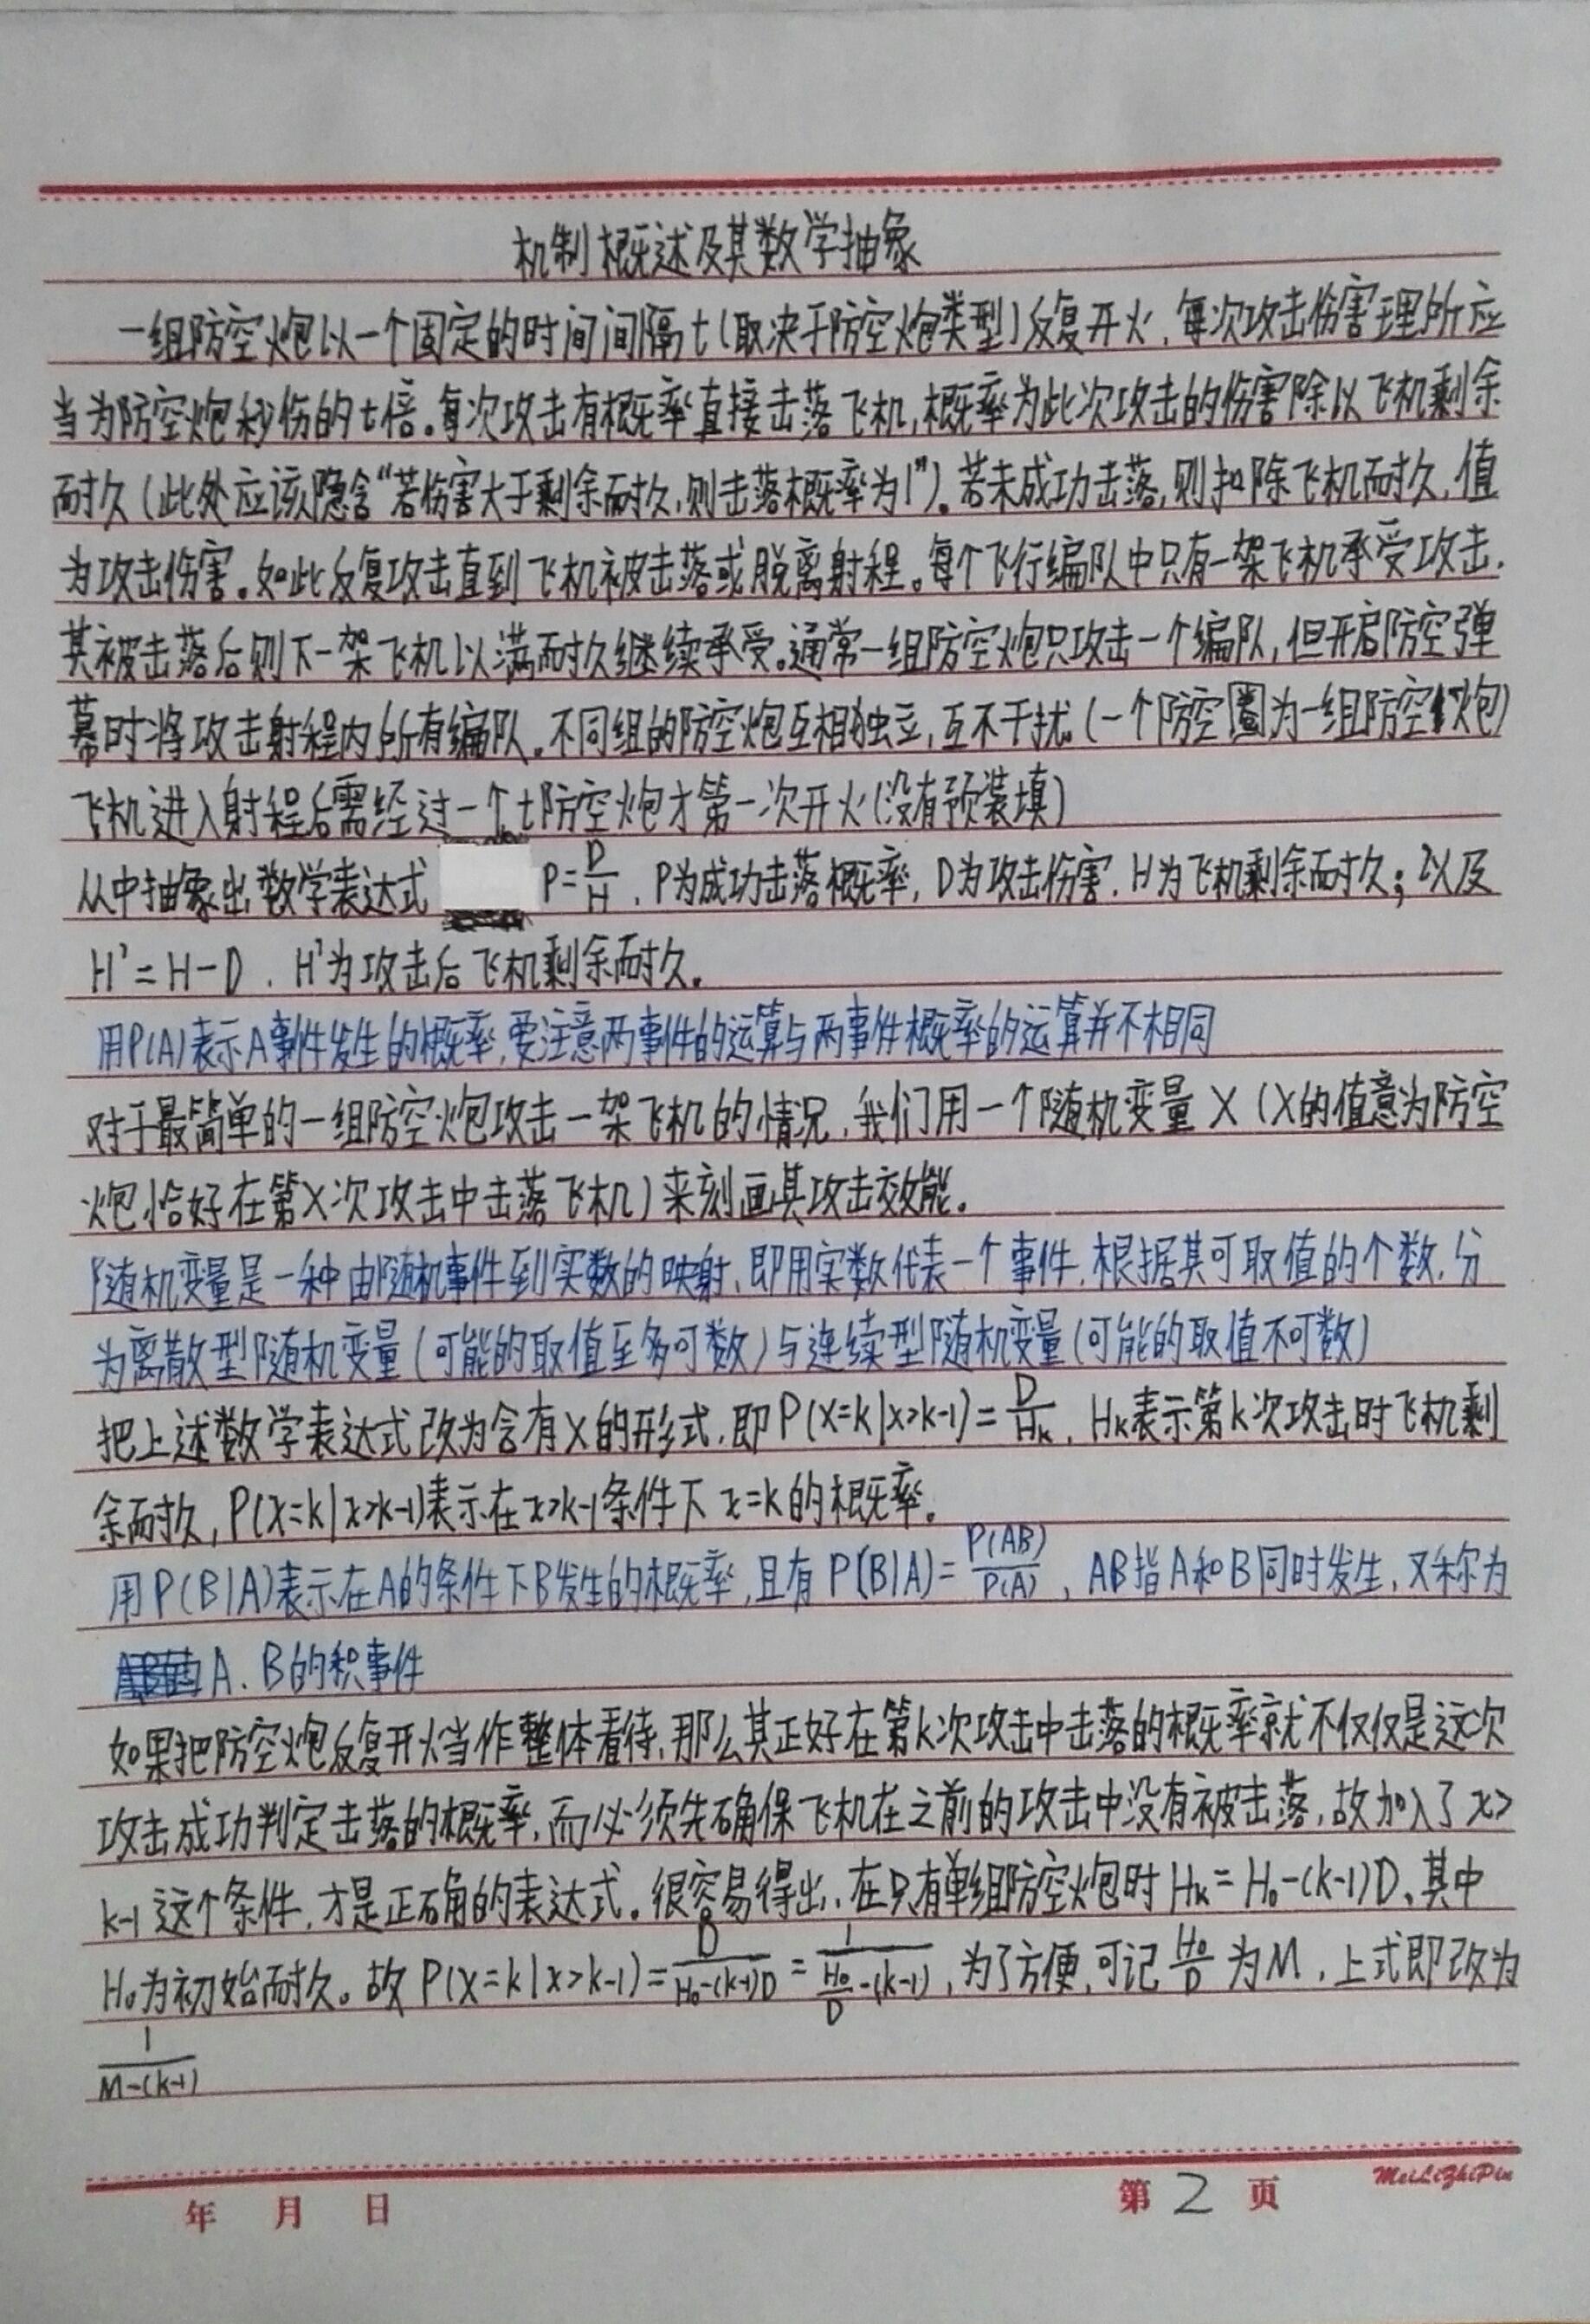 机制概述及其数学抽象
一组防空炮以一个固定的时间间隔t(取决于防空炮类型)反复开火,每次攻击伤害理所应
当为防空炮秒伤的t倍。每次攻击有概率直接击落飞机,概率为此次攻击的伤害除以飞机剩余
耐久(此处应该隐含“若伤害大于剩余耐久,则击落概率为1”)。若未成功击落,则扣除飞机耐久,值
为攻击伤害。如此反复攻击直到飞机被击落或脱离射程。每个飞行编队中只有一架飞机承受攻击,
其被击落后则下一架飞机以满耐久继续承受。通常一组防空炮只攻击一个编队,但开启防空弹
幕时将攻击射程内所有编队。不同组的防空炮互相独立,互不干扰。(一个防空圈为一组防空炮)
飞机进入射程后需经过一个t防空炮才第一次开火(没有预装填)
从中抽象出数学表达式 P=D/H,P为成功击落概率,D为攻击伤害,H为飞机剩余耐久;以及
H'=H-D,H'为攻击后飞机剩余耐久。
用P(A)表示A事件发生的概率,要注意两事件的运算与两事件概率的运算并不相同
对于最简单的一组防空炮攻击一架飞机的情况,我们用一个随机变量X(X的值意为防空
炮恰好在第X次攻击中击落飞机)来刻画其攻击效能。
随机变量是一种由随机事件到实数的映射,即用实数代表一个事件,根据其可取值的个数,分
为离散型随机变量(可能的取值至多可数)与连续型随机变量(可能的取值不可数)
把上述数学表达式改为含有X的形式,即P(X=k|X>k-1)=D/Hk,Hk表示第k次攻击时飞机剩
余耐久,P(X=k|X>k-1)表示在x>k-1条件下x=k的概率。
用P(B|A)表示在A的条件下B发生的概率,且有P(B|A)=P(AB)/P(A),AB指A和B同时发生,又称为
A、B的积事件
如果把防空炮反复开火当作整体看待,那么其正好在第k次攻击中击落的概率就不仅仅是这次
攻击成功判定击落的概率,而必须先确保飞机在之前的攻击中没有被击落,故加入了x>
k-1这个条件,才是正确的表达式。很容易得出,在只有单组防空炮时Hk=H0-(k-1)D,其中
H0为初始耐久。故P(X=k|X>k-1)=D/(H0-(k-1)D)=1/(H0/D-(k-1)),为了方便,可记H0/D为M,上式即改为
1/(M-(k-1))
年 月 日 第 2 页 MeiLiZhiPin